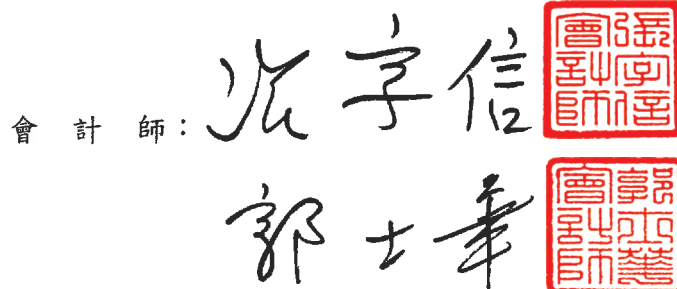 會計師：張字信
張字信會計師
郭士華
郭士華會計師